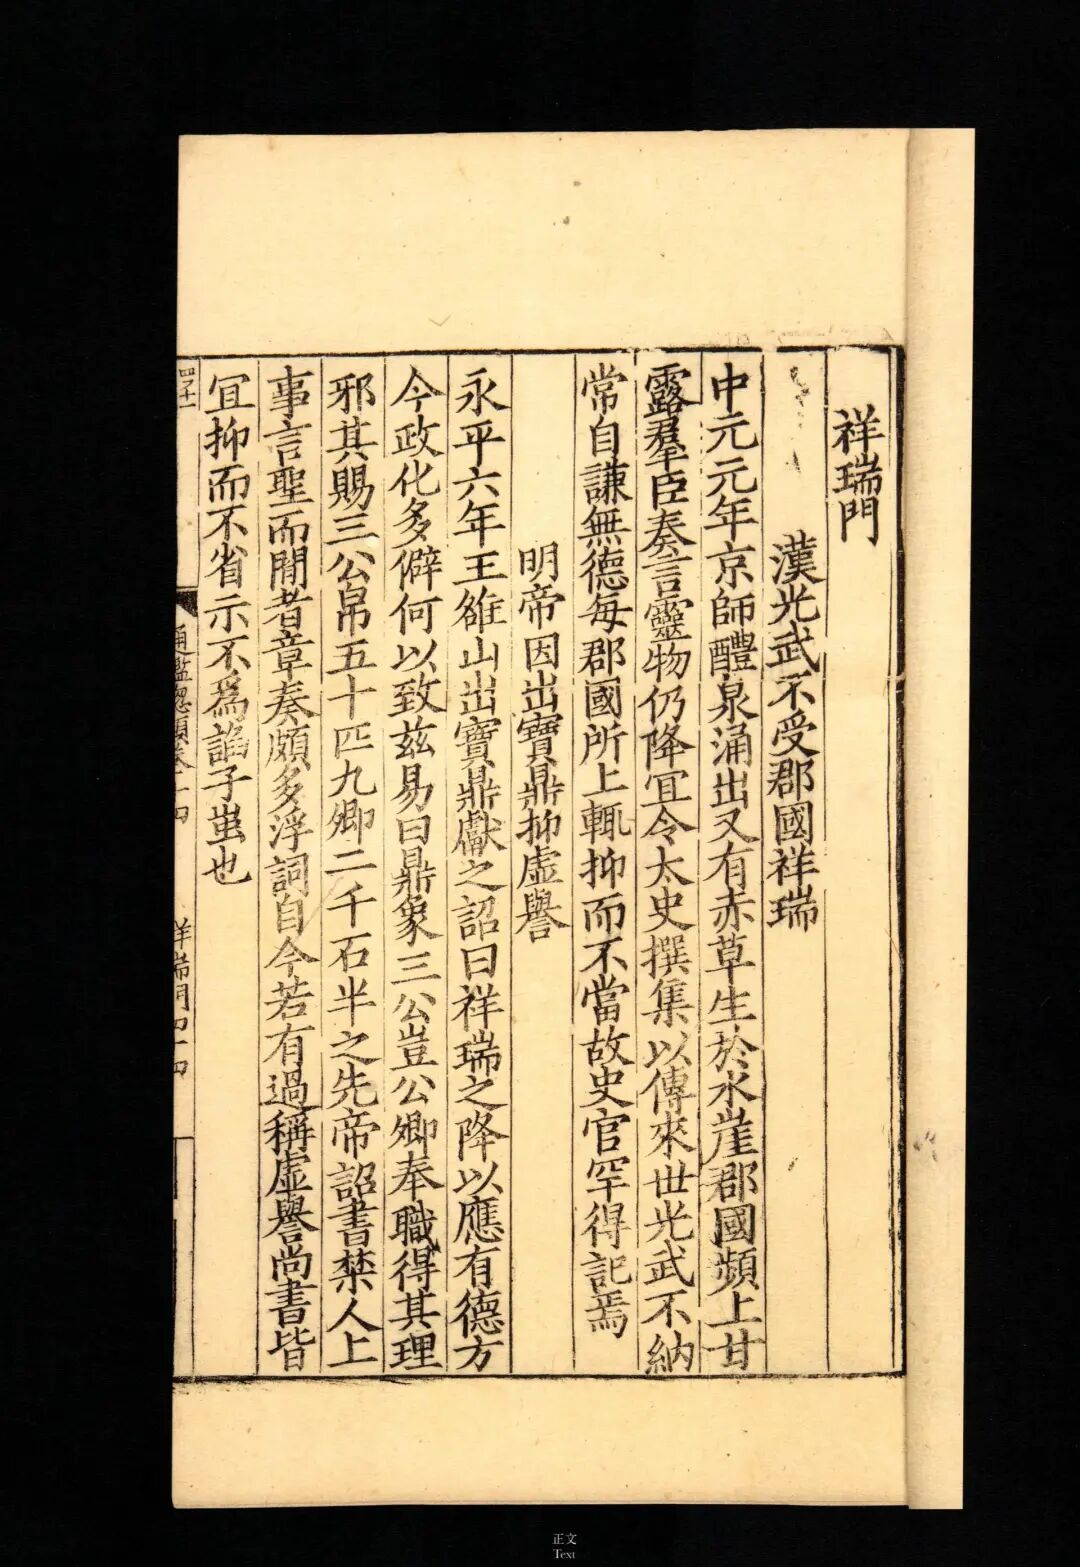 祥瑞門
漢光武不受郡國祥瑞
中元元年京師醴泉涌出又有赤草生於水崖郡國頻上甘
露羣臣奏言靈物仍降冝令太史撰集以傳來世光武不納
常自謙無德每郡國所上輒抑而不當故史官罕得記焉
明帝因出寶鼎抑虛譽
永平六年王雒山出寶鼎獻之詔曰祥瑞之降以應有德方
今政化多僻何以致茲易曰鼎象三公豈公卿奉職得其理
邪其賜三公帛五十匹九卿二千石半之先帝詔書禁人上
事言聖而間者章奏頗多浮詞自今若有過稱虛譽尚書皆
冝抑而不省示不爲諂子蚩也
通鑑總類卷十四
祥瑞門
正文
Text